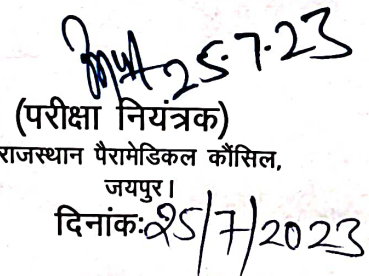 25.7.23
(परीक्षा नियंत्रक)
राजस्थान पैरामेडिकल कौंसिल,
जयपुर।
दिनांकः25/7/2023